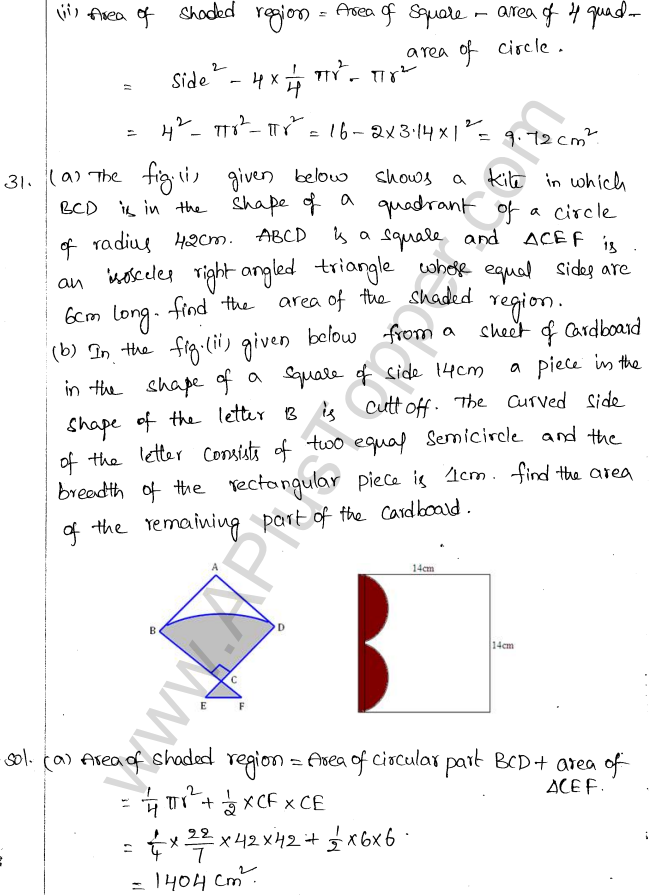 (ii) Area of shaded region = Area of square - area of 4 quad-
area of circle.
= Side² - 4 × 1/4 πr² - πr²
= 4² - πr² - πr² = 16 - 2×3.14×1² = 9.72 cm².
31. (a) The fig.(i) given below shows a kite in which
BCD is in the shape of a quadrant of a circle
of radius 42cm. ABCD is a square and ΔCEF is
an isosceles right angled triangle whose equal sides are
6cm long. find the area of the shaded region.
(b) In the fig.(ii) given below from a sheet of cardboard
in the shape of a square of side 14cm a piece in the
shape of the letter B is cutt off. The curved side
of the letter consists of two equal semicircle and the
breadth of the rectangular piece is 1cm. find the area
of the remaining part of the cardboard.
14cm
A
B
D
14cm
C
E F
Sol. (a) Area of shaded region = Area of circular part BCD + area of
ΔCEF.
= 1/4 πr² + 1/2 × CF × CE
= 1/4 × 22/7 × 42 × 42 + 1/2 × 6×6.
= 1404 cm².
www.APlusTopper.com